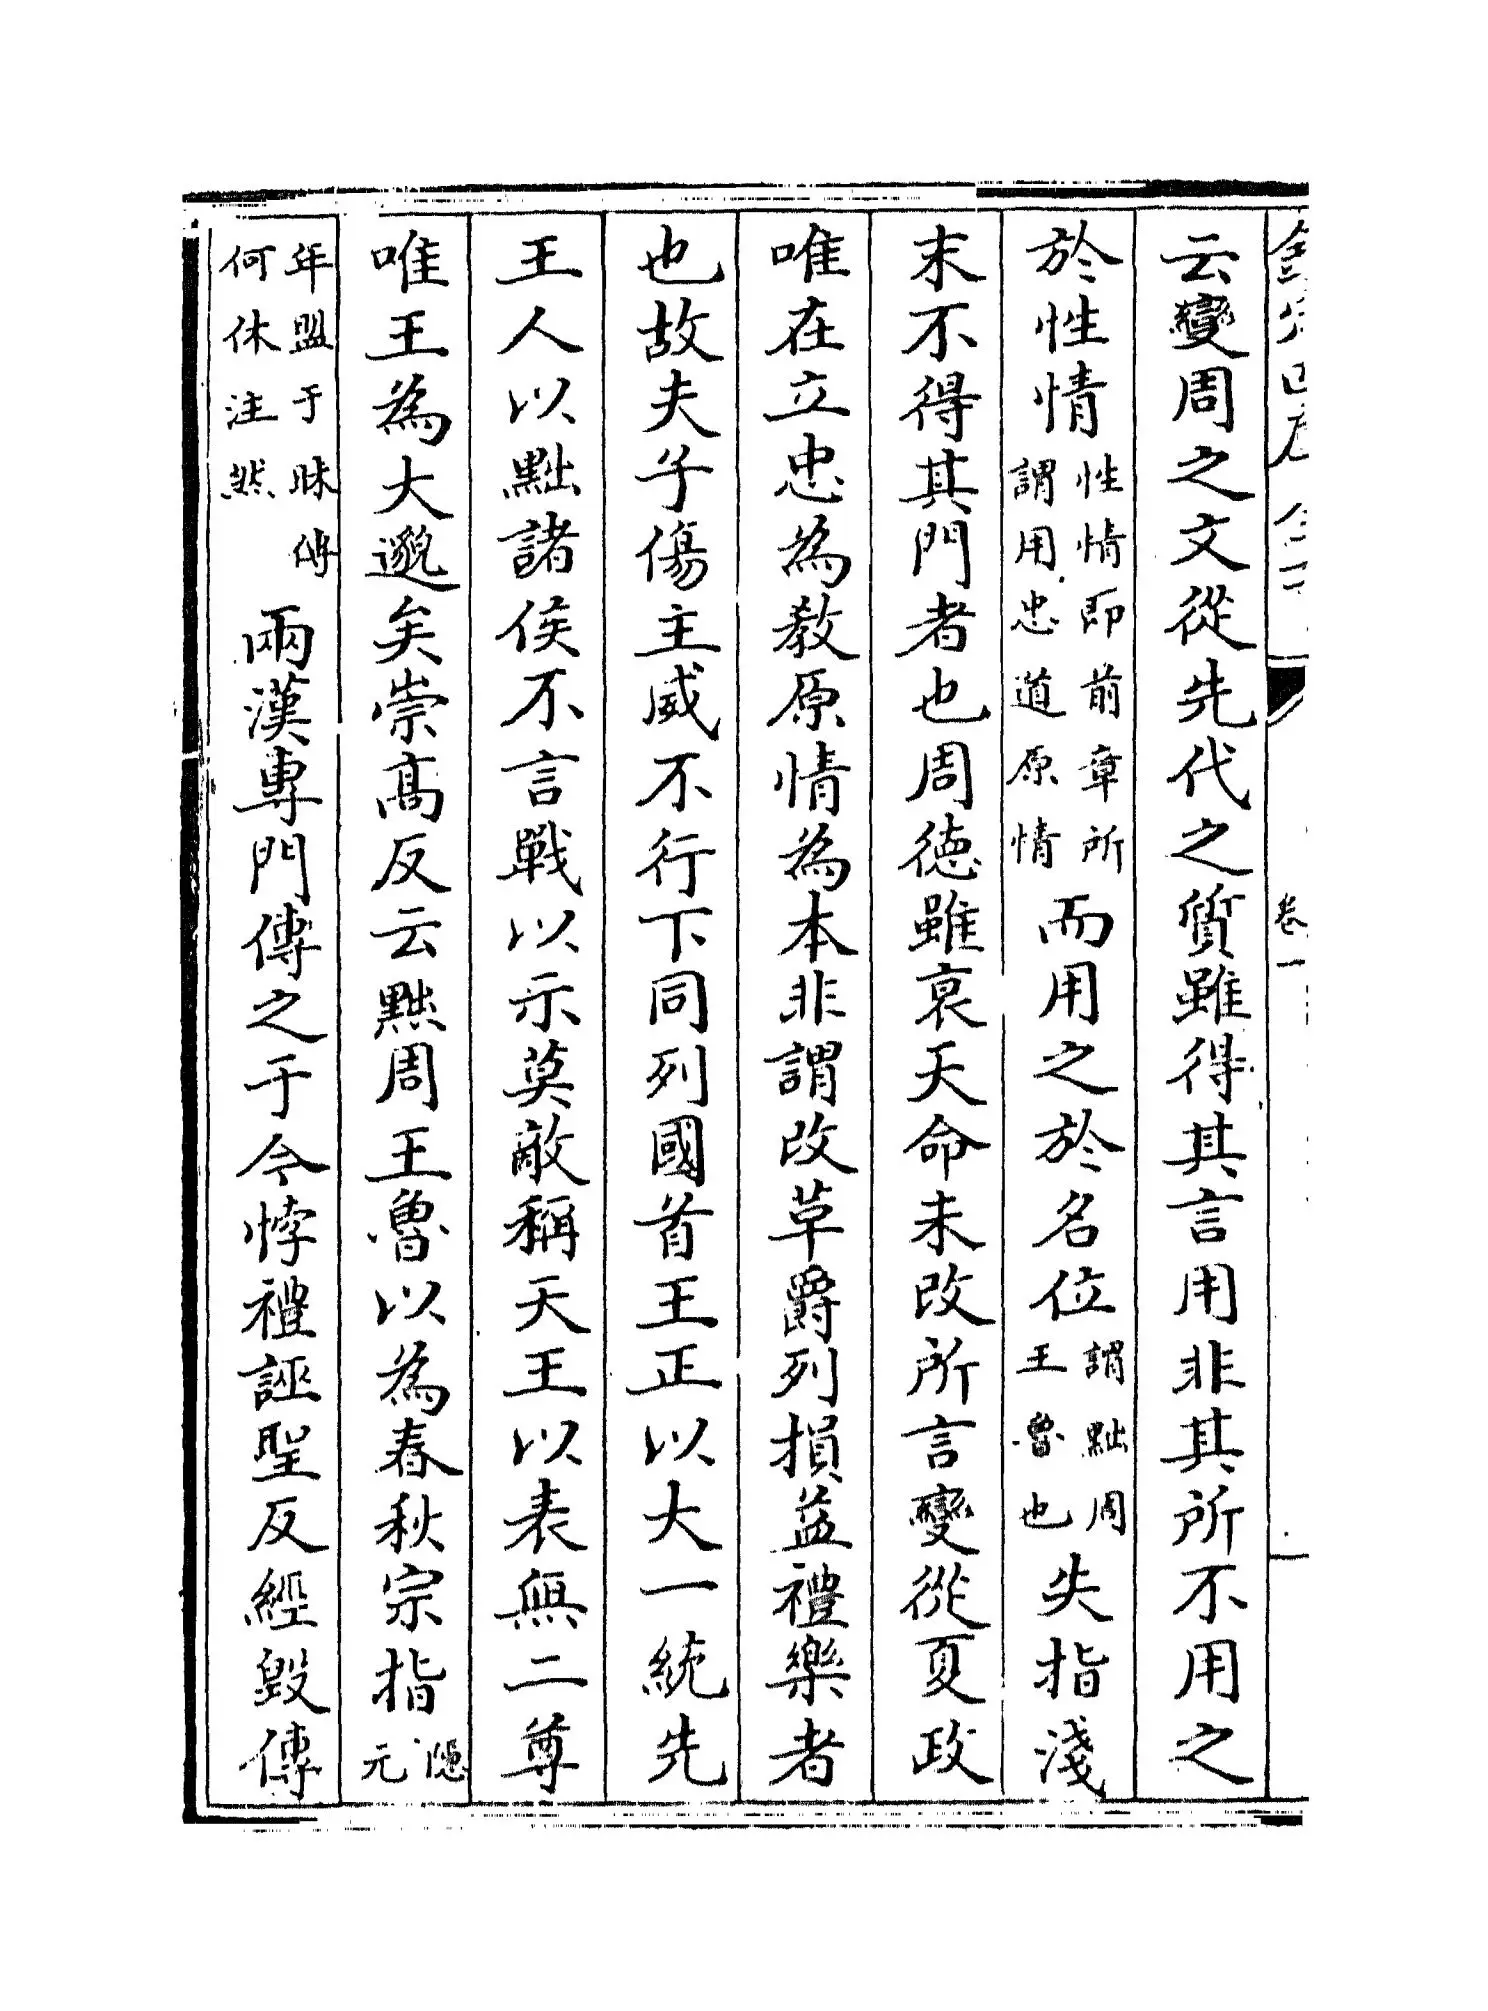 云變周之文從先代之質雖得其言用非其所不用之
於性情性情即前章所謂用忠道原情而用之於名位謂黜周王魯也失指淺
末不得其門者也周德雖衰天命未改所言變從夏政
唯在立忠為教原情為本非謂改革爵列損益禮樂者
也故夫子傷主威不行下同列國首王正以大一統先
王人以黜諸侯不言戰以示莫敵稱天王以表無二尊
唯王為大邈矣崇髙反云黜周王魯以為春秋宗指隱元
年盟于昧傳何休注然兩漢專門傳之于今悖禮誣聖反經毀傳